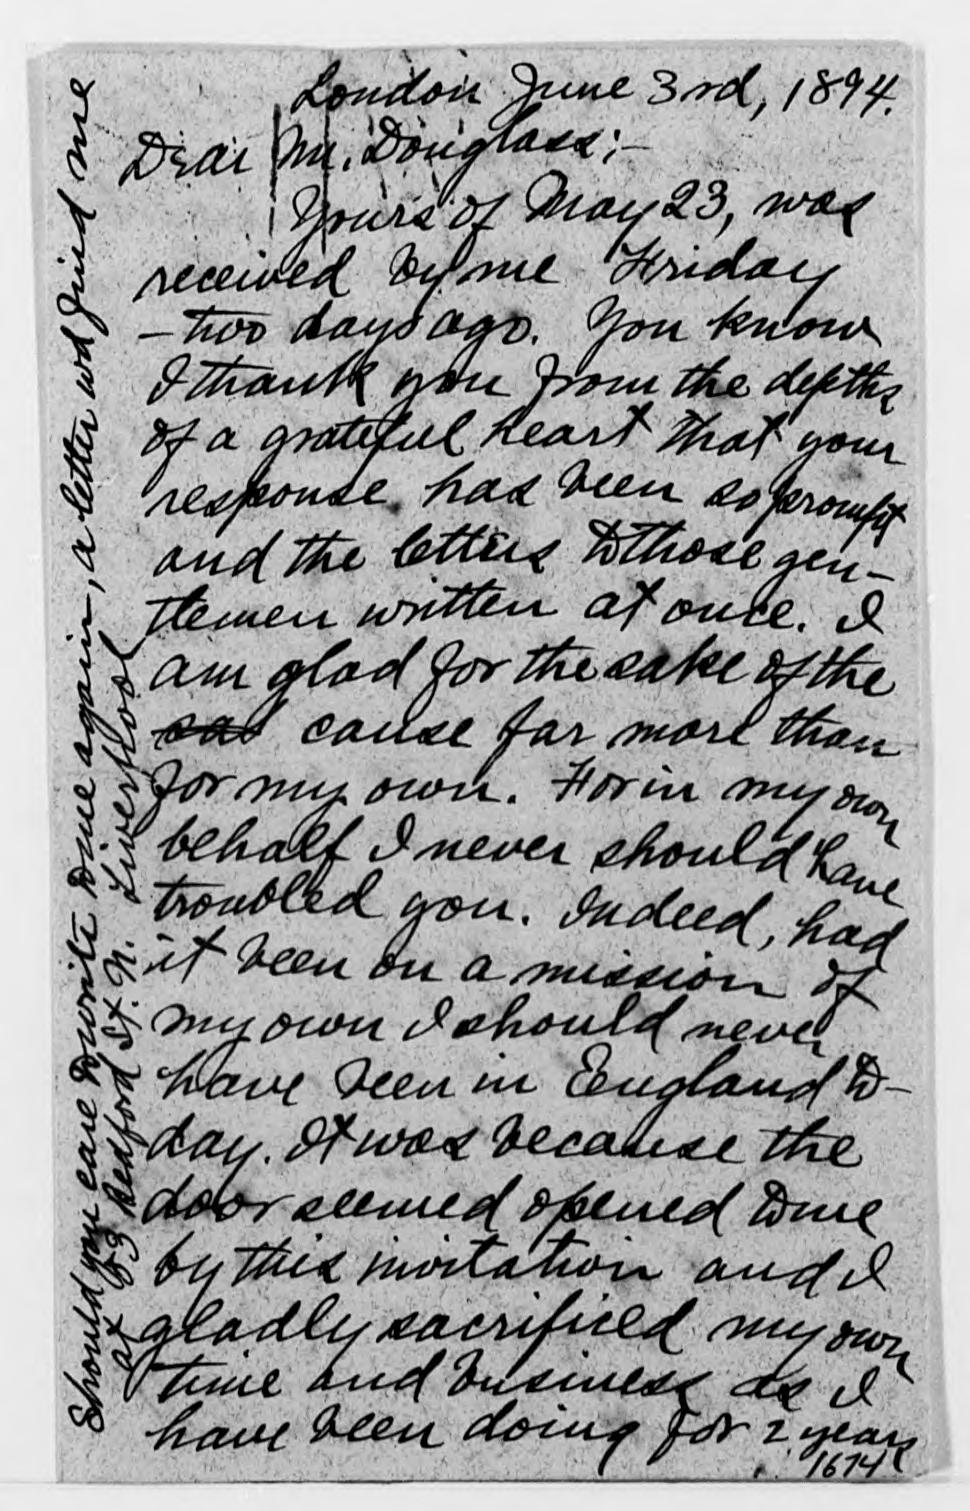 London June 3rd, 1894.
Dear Mr. Douglass;—
Yours of May 23, was
received by me Friday
— two days ago. You know
I thank you from the depths
of a grateful heart that your
response has been so prompt
and the letters to those gen-
tlemen written at once. I
am glad for the sake of the
cause far more than
for my own. For in my own
behalf I never should have
troubled you. Indeed, had
it been on a mission of
my own I should never
have been in England to-
day. It was because the
door seemed opened to me
by this invitation and I
gladly sacrificed my own
time and business as I
have been doing for 2 years
1674
Should you care to write to me again, a letter wd find me
at 53 Bedford St. N. Liverpool